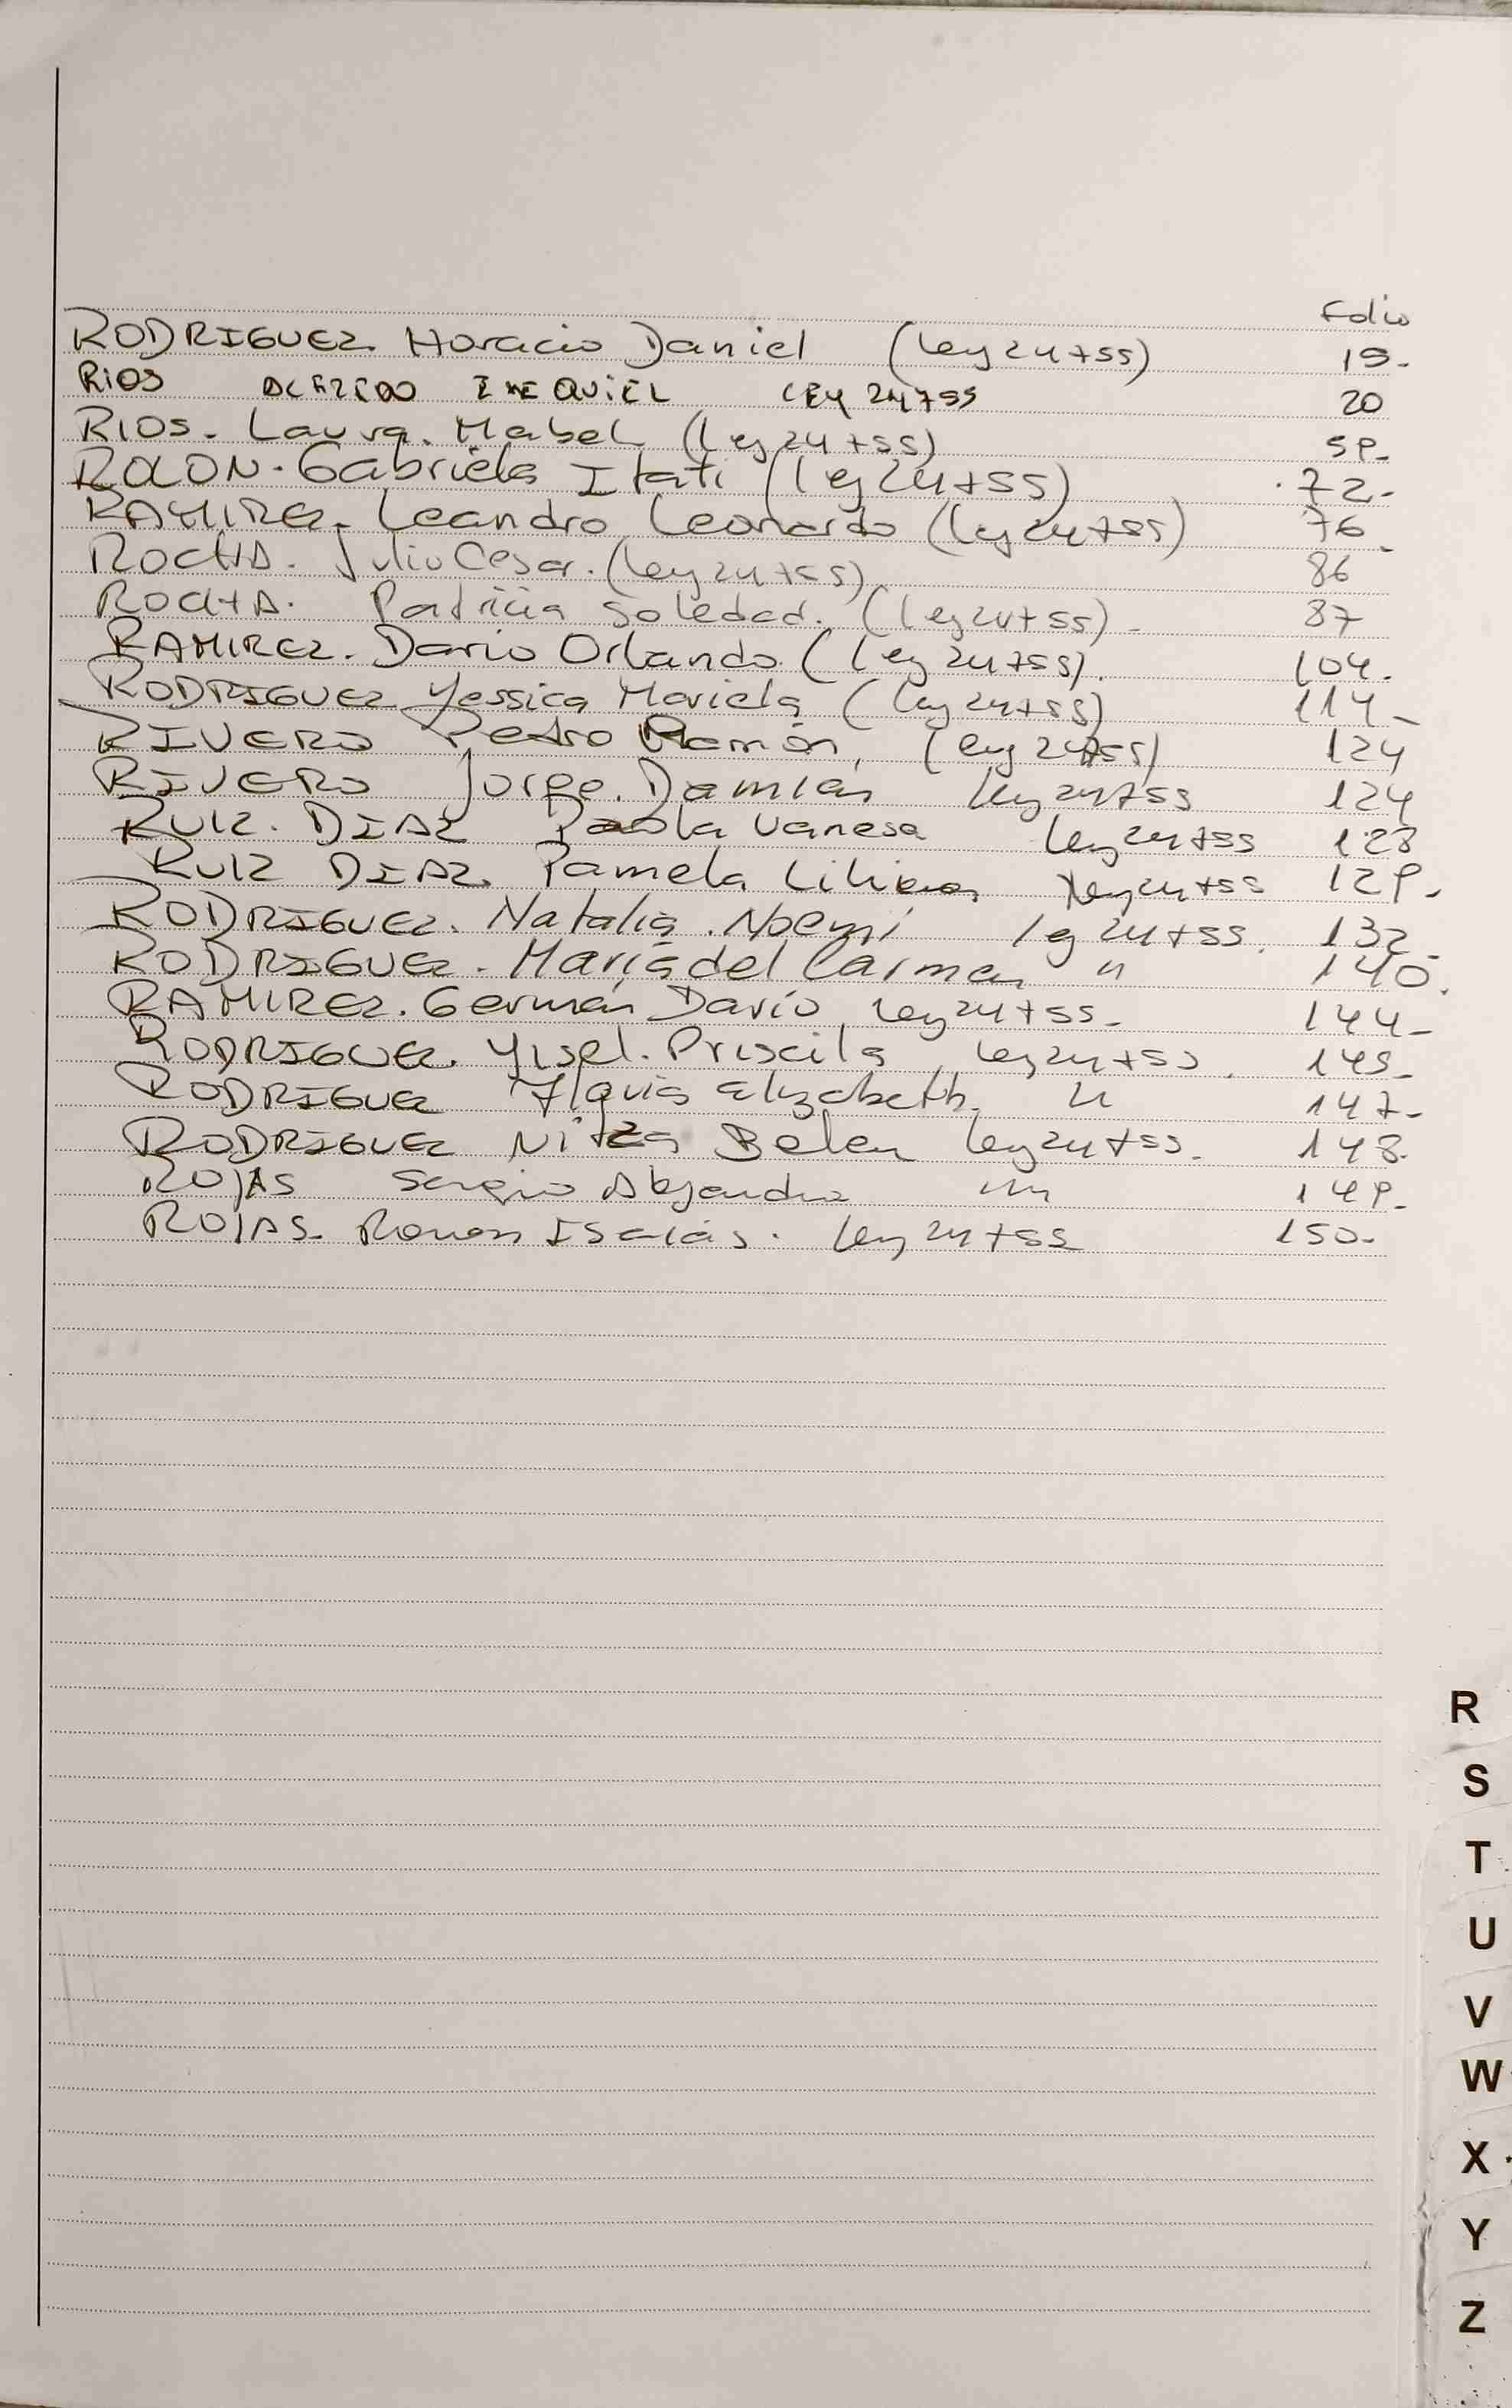 Folio
RODRIGUEZ Horacio Daniel (Ley 24755) 19-
RIOS ALFREDO EXEQUIEL LEY 24755 20
RIOS. Laura. Mabel (Ley 24755) 59-
ROLON. Gabriela Itati (Ley 24755) 72-
RAMIREZ. Leandro Leonardo (Ley 24755) 76
ROCHA. Julio Cesar. (Ley 24755). 86
ROCHA. Patricia Soledad. (Ley 24755)- 87
RAMIREZ. Dario Orlando. (Ley 24755). 104.
RODRIGUEZ Yessica Mariela (Ley 24755) 114-
RIVERO Pedro Ramón, (Ley 24755) 124
RIVERO Jorge. Damián Ley 24755 124
RUIZ. DIAZ Paola Vanesa Ley 24755 128
RUIZ DIAZ. Pamela Liliana Ley 24755 129-
RODRIGUEZ. Natalia. Noemí Ley 24755. 132-
RODRIGUEZ. María del Carmen " 140.
RAMIREZ. Germán Darío Ley 24755- 144-
RODRIGUEZ. Yisel. Priscila Ley 24755. 145-
RODRIGUEZ Flavia Elizabeth. " 147-
RODRIGUEZ Belen Ley 24755. 148.
ROJAS Sergio Alejandro "" 149-
ROJAS. Ramon Isaías. Ley 24755 150-
R
S
T
U
V
W
X
Y
Z